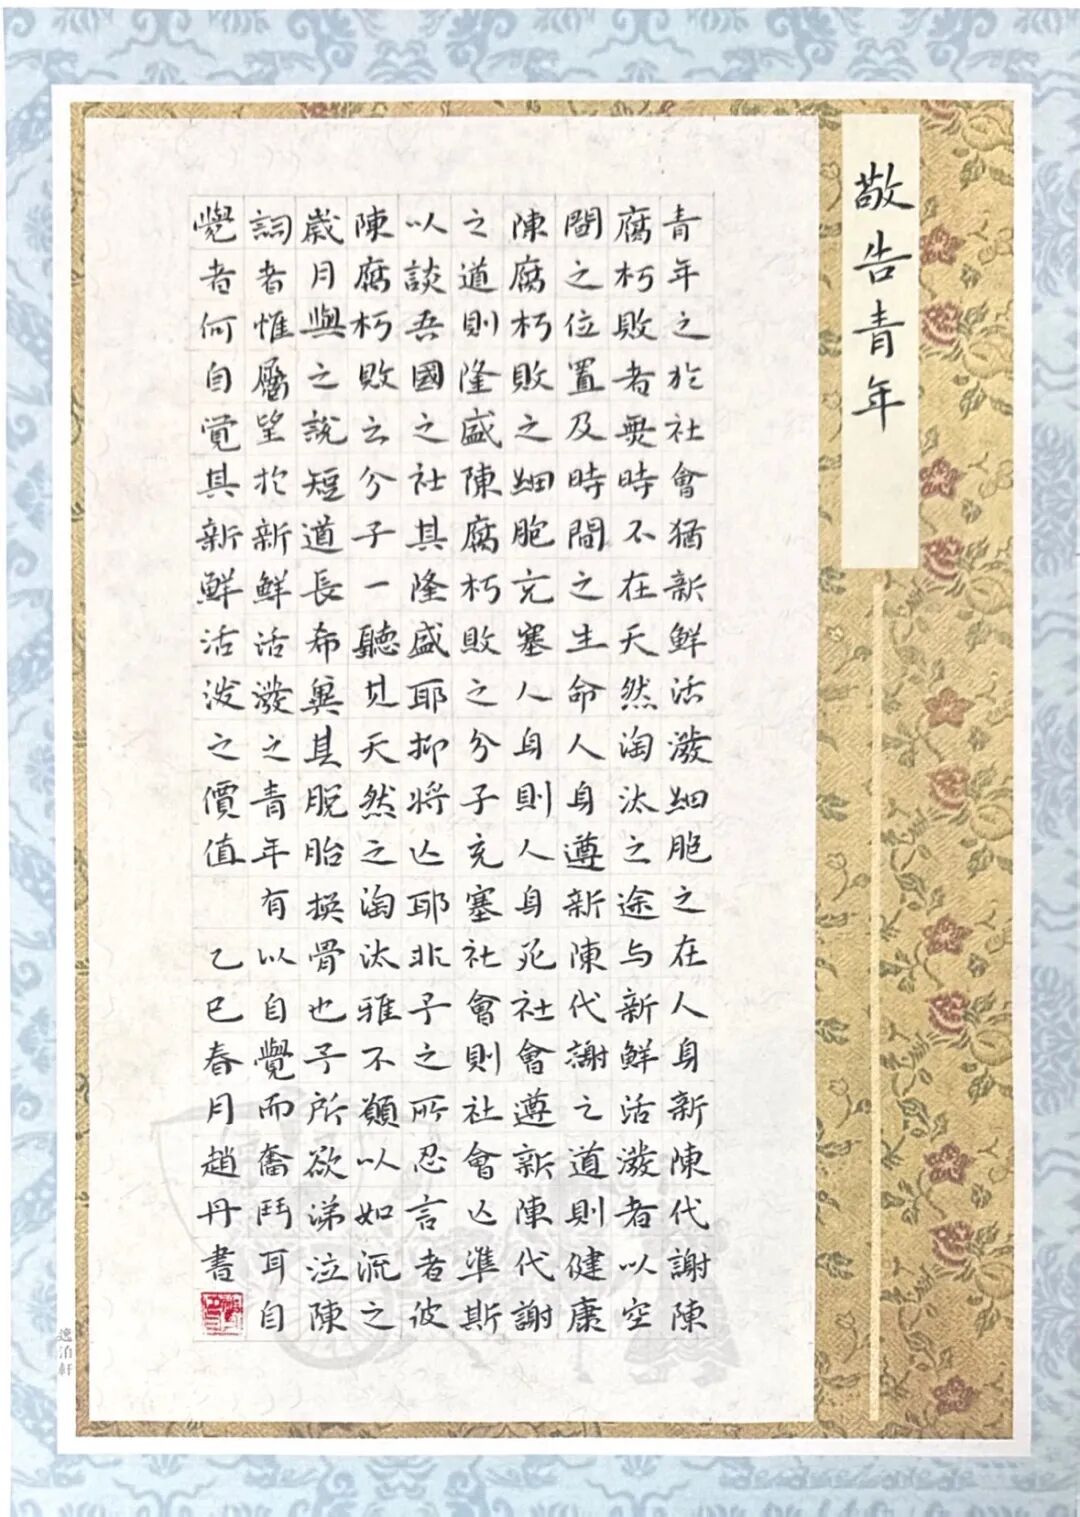 敬告青年
青年之於社會猶新鮮活潑細胞之在人身新陳代謝陳
腐朽敗者無時不在天然淘汰之途与新鮮活潑者以空
間之位置及時間之生命人身遵新陳代謝之道則健康
陳腐朽敗之細胞充塞人身則人身死社會遵新陳代謝
之道則隆盛陳腐朽敗之分子充塞社會則社會亡準斯
以談吾國之社其隆盛耶抑將亡耶非予之所忍言者彼
陳腐朽敗云分子一聽其天然之淘汰雅不願以如流之
歲月與之說短道長希冀其脫胎換骨也予所欲涕泣陳
詞者惟屬望於新鮮活潑之青年有以自覺而奮鬥耳自
覺者何自覺其新鮮活泼之價值 乙巳春月趙丹書
逸泊軒